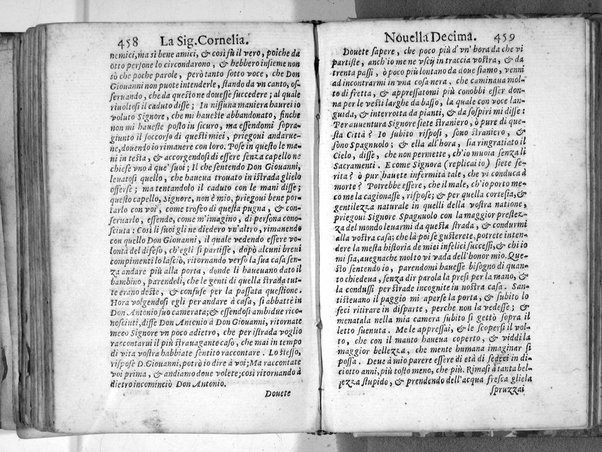 458 La Sig. Cornelia.
nemici, ma sì bene amici, & così fù il vero, poiche da
otto persone lo circondarono, & hebbero insieme non
sò che poche parole, però tanto sotto voce, che Don
Giouanni non puote intenderle, stando da vn canto, os-
seruando, che da questione douesse succedere; al quale
riuoltosi il caduto disse: In nissuna maniera haurei io
voluto Signore, che mi haueste abbandonato, finche
non mi haueste posto in sicuro, ma essendomi sopra-
giunto il soccorso di questi amici, priegoui andarue-
ne, douendo io rimanere con loro. Pose in questo le ma
ni in testa, & accorgendosi di essere senza capello ne
chiese vno à que' suoi; Il che sentendo Don Giouanni,
leuatosi quello, che haueua trouato in istrada glielo
offerse; ma tentandolo il caduto con le mani disse;
questo capello, Signore, non è mio, priegoui bene por-
tarlo con voi, come trofeo di questa pugna, & con-
seruarlo, essendo, come m'imagino, di persona cono-
sciuta: Così li suoi gli ne diedero vn'altro, rimanendo
con quello Don Giouanni, il quale vedendo essere vo-
lontà del difeso, ch'egli si partisse, dopò alcuni breui
complimenti lo lasciò, ritornando verso la sua casa sen-
za andare più alla porta, donde li haueuano dato il
bambino, parendoli, che le genti di quella strada tut-
te erano deste, & confuse per la passata questione.
Hora volgendosi egli per andare à casa, si abbatte in
Don Antonio suo camerata; & essendosi ambidue rico-
nosciuti, disse Don Antonio à Don Giouanni, ritornate
meco Signore vn poco adietro, che per istrada voglio
raccontarui il più strauagante caso, che mai in tempo
di vita vostra habbiate sentito raccontare. Lo stesso,
rispose D. Giouanni, potrò io dire à voi; Ma raccontate
voi prima, & andiamo doue volete; così ritornando à
dietro incominciò Don Antonio.
Douete
Nouella Decima. 459
Douete sapere, che poco più d'vn' hora da che vi
partiste, anch'io me ne vscij in traccia vostra, & da
trenta passi, ò poco più lontano da doue stiamo, venni
ad incontrarmi in vna cosa nera, che caminaua mol-
to di fretta, & appressatomi più conobbi esser don-
na per le vesti larghe da basso, la quale con voce lan-
guida, & interrotta da pianti, & da sospiri mi disse:
Per auuentura Signore siete straniero, ò pure di que-
sta Città? Io subito risposi, sono straniero, &
sono Spagnuolo; & ella all'hora, sia ringratiato il
Cielo, disse, che non permette, ch'io muoia senza li
Sacramenti. E come Signora (replicai io) siete fe-
rita? ò pur hauete infermità tale, che vi conduca à
morte? Potrebbe essere, che il male, ch'io porto me-
co me la cagionasse, rispose; & per quella cortesia, &
gentilezza naturale in quelli della vostra natione,
priegoui Signore Spagnuolo con la maggior prestez-
za del mondo leuarmi da questa strada, & condurmi
alla vostra casa; che là poi se gusterete, potrete inten-
dere la mesta historia de' miei infelici successi, & chi io
mi sia, auuegnache molto vi vada dell'honor mio. Que
sto sentendo io, parendomi hauesse bisogno di quan-
to chiedeua, senza dir parola la presi per la mano, &
la condussi per istrade incognite in nostra casa. San-
tisteuano il paggio mi aperse la porta, & subito lo
feci ritirare in disparte, perche non la vedesse; &
menatala nella mia camera subito si gettò sopra il
letto suenuta. Me le appressai, & le scopersi il vol-
to, che con il manto haueua coperto, & viddi la
maggior bellezza, che mente humana imaginar si
possa. Deue à mio parere essere di età di sedeci in di-
ciotto anni, più tosto meno, che più. Rimasi à tanta bel-
lezza stupido, & prendendo dell'acqua fresca gliela
spruzzai